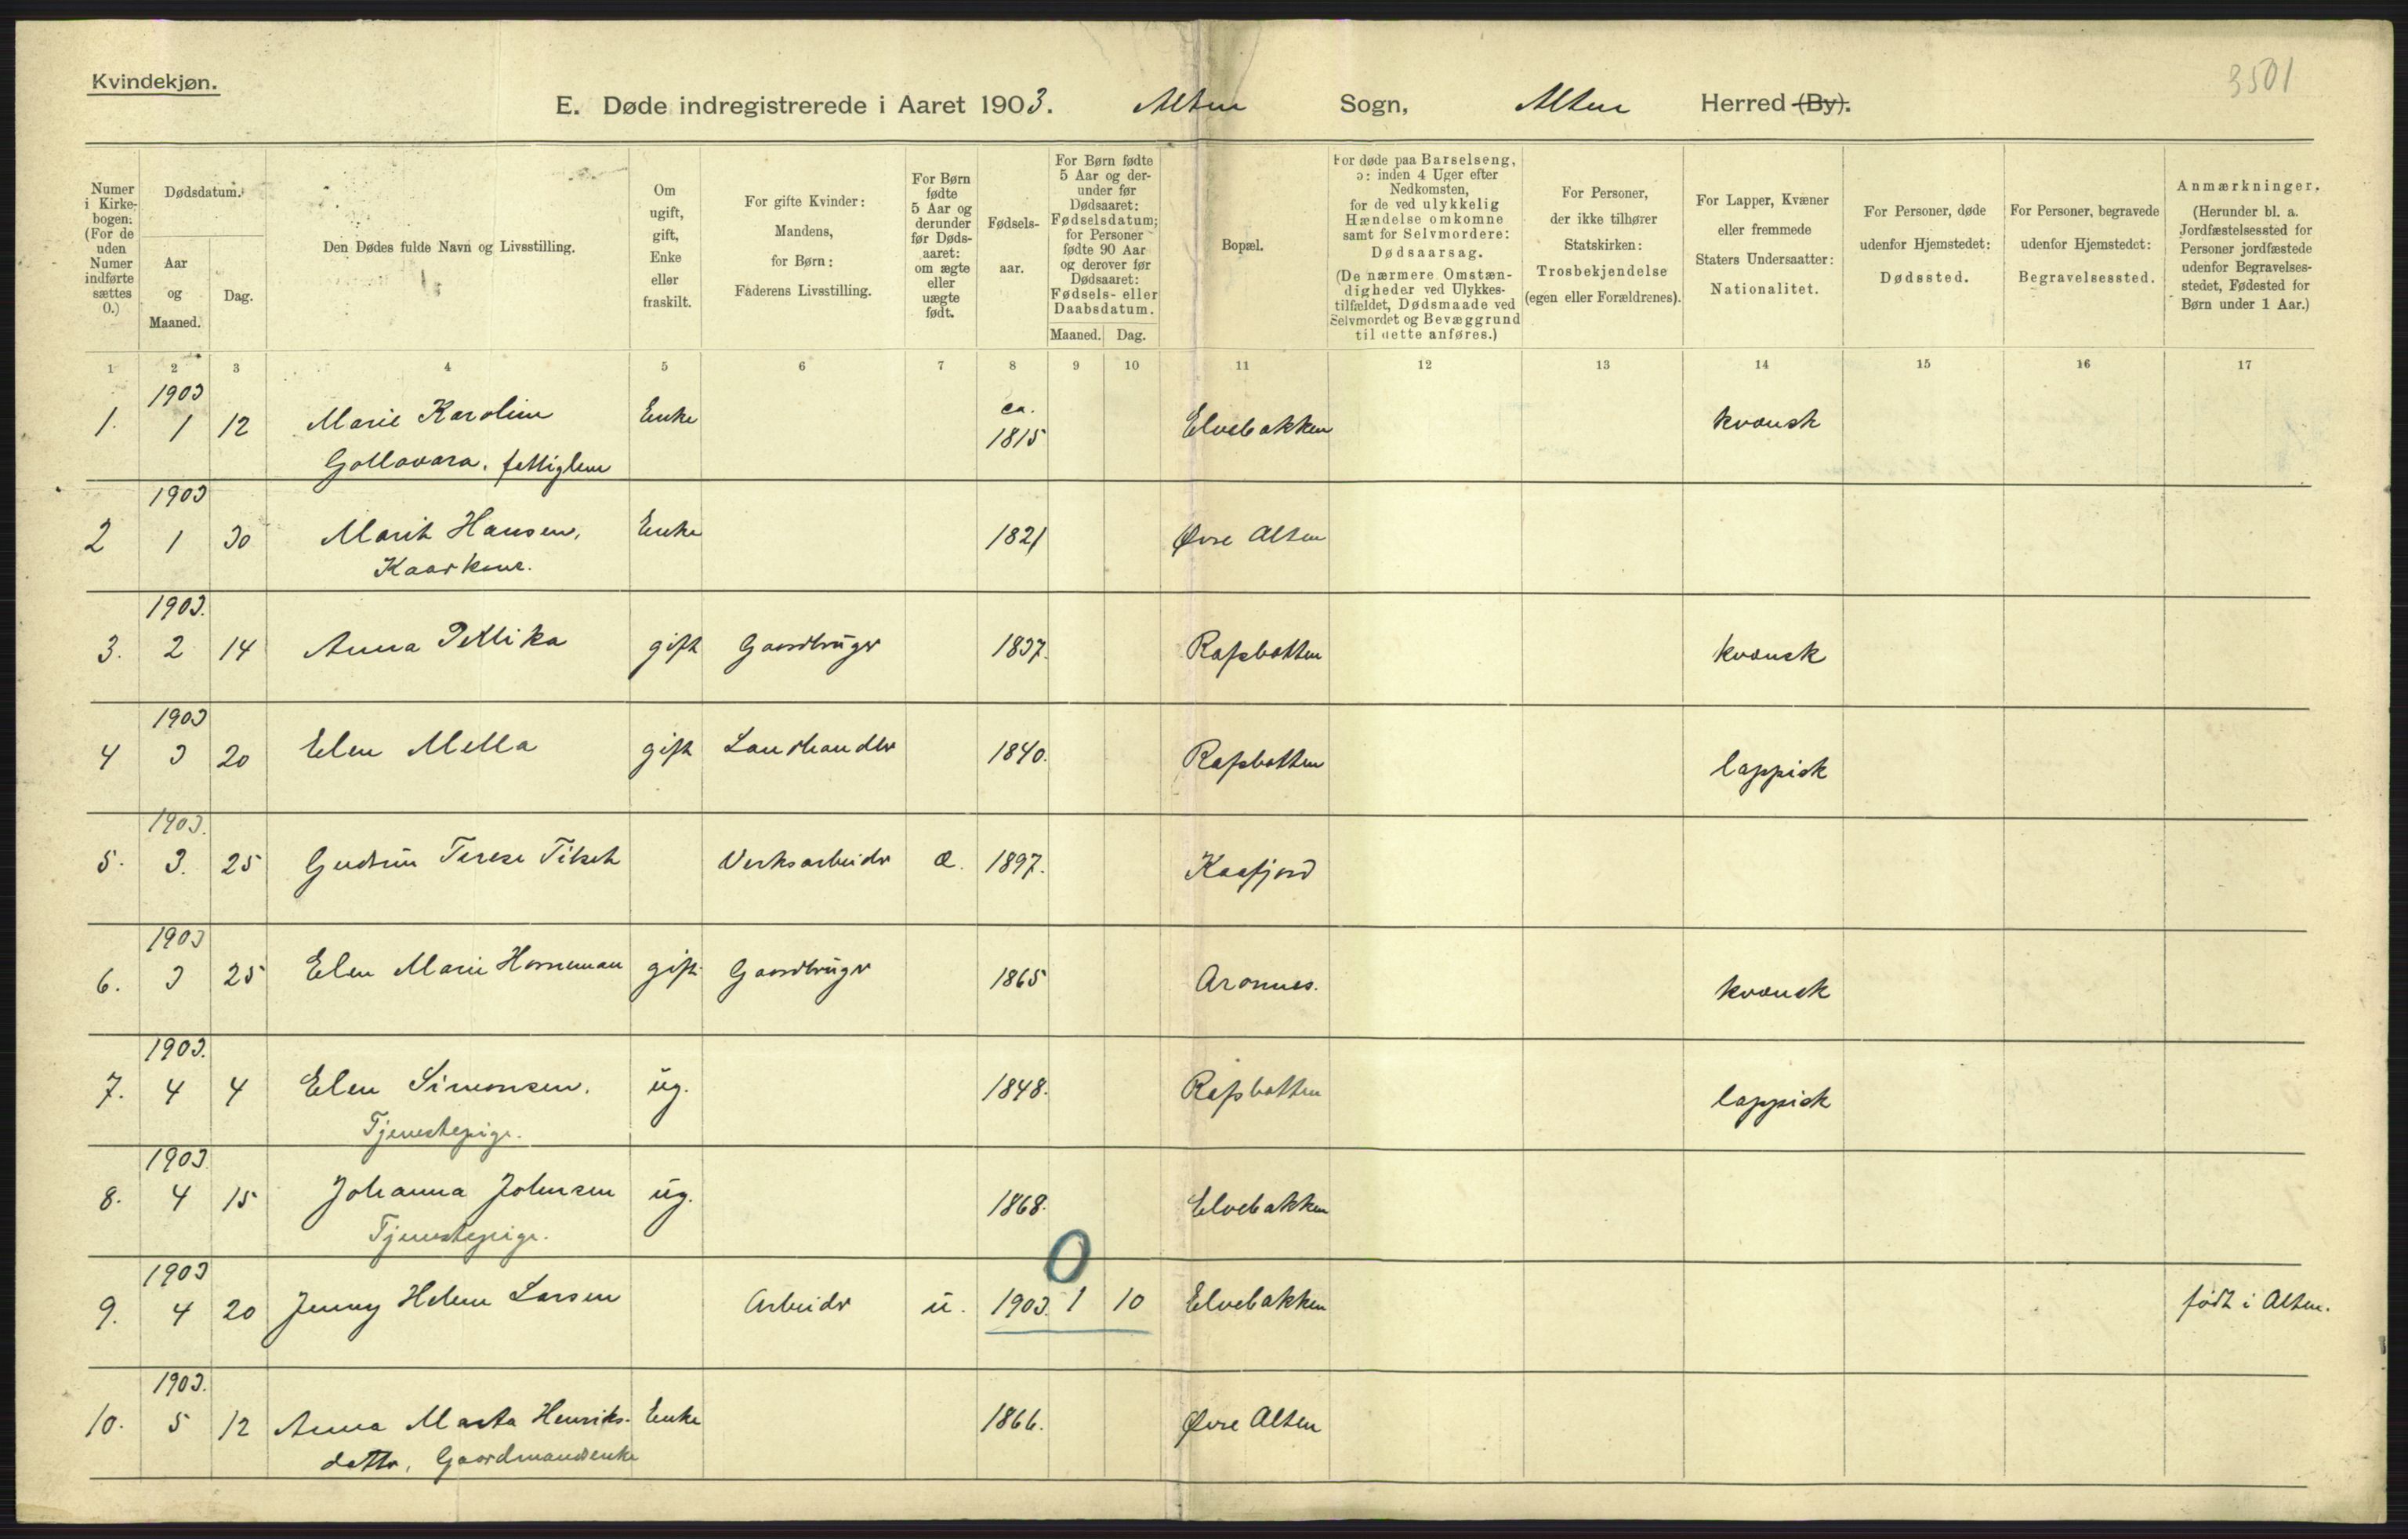 Kvindekjøn.
3501
E. Døde indregistrerede i Aaret 1903. Alten Sogn, Alten Herred (By).
Numer i Kirkebogen: (For de uden Numer indførte sættes 0.)
Dødsdatum.
Aar og Maaned.
Dag.
Den Dødes fulde Navn og Livsstilling.
Om ugift, gift, Enke eller fraskilt.
For gifte Kvinder: Mandens, for Børn: Faderens Livsstilling.
For Børn fødte 5 Aar og derunder før Døds-aaret: om ægte eller uægte født.
Fødsels-aar.
For Børn fødte 5 Aar og der-under før Dødsaaret: Fødselsdatum; for Personer fødte 90 Aar og derover før Dødsaaret: Fødsels- eller Daabsdatum.
Maaned. Dag.
Bopæl.
For døde paa Barselseng, ɔ: inden 4 Uger efter Nedkomsten, for de ved ulykkelig Hændelse omkomne samt for Selvmordere: Dødsaarsag. (De nærmere Omstæn-digheder ved Ulykkes-tilfældet, Dødsmaade ved Selvmordet og Bevæggrund til dette anføres.)
For Personer, der ikke tilhører Statskirken: Trosbekjendelse (egen eller Forældrenes).
For Lapper, Kvæner eller fremmede Staters Undersaatter: Nationalitet.
For Personer, døde udenfor Hjemstedet: Dødssted.
For Personer, begravede udenfor Hjemstedet: Begravelsessted.
Anmærkninger. (Herunder bl. a. Jordfæstelsessted for Personer jordfæstede udenfor Begravelses-stedet, Fødested for Børn under 1 Aar.)
1 2 3 4 5 6 7 8 9 10 11 12 13 14 15 16 17
1903
1. 1 12 Marie Karoline Enke ca. 1815 Elvebakken kvænsk
Gollavara, fattiglem
1903
2 1 30 Marit Hansen, Enke 1821 Øvre Alten
Kaarkone.
1903.
3. 2 14 Anna Pettika gift Gaardbruger 1837. Rafsbotten kvænsk
1903
4 3 20 Elen Mella gift Landhandler 1840. Rafsbotten lappisk
1903.
5. 3. 25 Gudrun Terese Titsch Verksarbeider æ. 1897. Kaafjord
1903
6. 3 25 Elen Marie Horneman gift Gaardbruger 1865 Aronnes. kvænsk
1903.
7. 4 4 Elen Simonsen. ug. 1848. Rafsbotten lappisk
Tjenestepige.
1903
8. 4 15 Johanna Johnsen ug. 1868. Elvebakken
Tjenestepige.
0
1903
9. 4 20 Jenny Helene Larsen Arbeider u. 1903. 1 10 Elvebakken født i Alten.
1903.
10. 5 12 Anna Marta Henriks- Enke 1866. Øvre Alten
datter, Gaardmandsenke